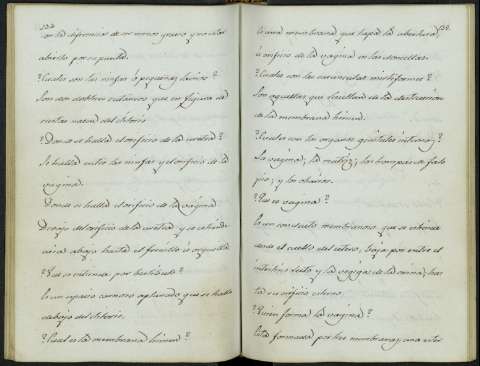 134
con la diferencia de ser menos grueso y no estar
abierto por su punta.
?Cuales son las ninfas ó pequeños labios?
Son dos dobleces cutaneos, que en figura de
crestas nacen del clitoris.
?Donde se halla el orificio de la uretra?
Se halla entre las ninfas y el orificio de la
vagina.
Donde se halla el orificio de la vagina
Devajo del orificio de la uretra y se extiende
acia abajo hasta el frenillo ú orquilla
?Que se entiende por bestibulo?
Es un espacio carnoso aplanado que se halla
debajo del clitoris.
?Cual es la membrana himen?
135.
Es una membrana que tapa la abertura
ú orificio de la vagina en las doncellas.
?Cuales son las carunculas mirtiformes?
Son aquellas que resultan de la destruccion
de la membrana himen.
?Cuales son los organos genitales internos?
La vagina; la matriz; las trompas de Falo
pio; y los ovarios.
?Que es vagina?
Es un conducto membranoso que se extiende
desde el cuello del utero, baja por entre el
intestino recto y la vegiga de la orina, has
ta su orificio esterno.
?Quien forma la vagina?
Está formada por tres membranas; una ester